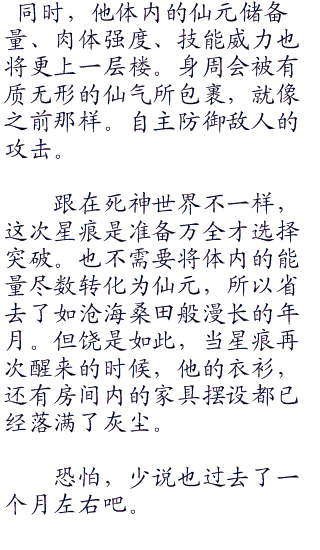 同时，他体内的仙元储备
量、肉体强度、技能威力也
将更上一层楼。身周会被有
质无形的仙气所包裹，就像
之前那样。自主防御敌人的
攻击。
跟在死神世界不一样，
这次星痕是准备万全才选择
突破。也不需要将体内的能
量尽数转化为仙元，所以省
去了如沧海桑田般漫长的年
月。但饶是如此，当星痕再
次醒来的时候，他的衣衫，
还有房间内的家具摆设都已
经落满了灰尘。
恐怕，少说也过去了一
个月左右吧。